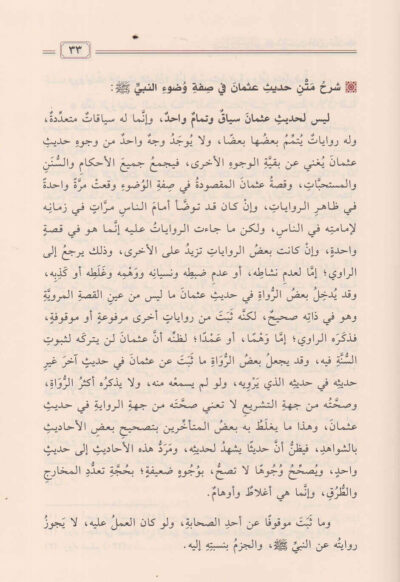 ٣٣
شرحُ مَتْنِ حديثِ عثمانَ في صِفةِ وُضوءِ النبيِّ ﷺ:
ليس لحديثِ عثمانَ سياقٌ وتمامٌ واحدٌ، وإنَّما له سياقاتٌ متعدِّدةٌ،
وله رواياتٌ يُتمِّمُ بعضُها بعضًا، ولا يُوجَدُ وجهٌ واحدٌ من وجوهِ حديثِ
عثمانَ يُغني عن بقيَّةِ الوجوهِ الأخرى، فيجمعُ جميعَ الأحكامِ والسُّننِ
والمستحبَّاتِ، وقصةُ عثمانَ المقصودةُ في صِفةِ الوُضوءِ وقعتْ مرَّةً واحدةً
في ظاهرِ الرواياتِ، وإنْ كان قد توضَّأ أمامَ الناسِ مرَّاتٍ في زمانِه
لإمامتِه في الناسِ، ولكن ما جاءت الرواياتُ عليه إنَّما هو في قصةٍ
واحدةٍ، وإنْ كانت بعضُ الرواياتِ تزيدُ على الأخرى، وذلك يرجعُ إلى
الراوي؛ إمَّا لعدمِ نشاطِه، أو عدمِ ضبطِه ونسيانِه ووَهْمِه وغَلَطِه أو كَذِبِه،
وقد يُدخِلُ بعضُ الرُّواةِ في حديثِ عثمانَ ما ليس من عينِ القصةِ المرويَّةِ
وهو في ذاتِه صحيحٌ، لكنَّه ثَبَتَ من رواياتٍ أخرى مرفوعةٍ أو موقوفةٍ،
فذكَرَه الراوي؛ إمَّا وَهْمًا، أو عَمْدًا؛ لظنِّه أنَّ عثمانَ لن يتركَه لثبوتِ
السُّنَّةِ فيه، وقد يجعلُ بعضُ الرُّواةِ ما ثَبَتَ عن عثمانَ في حديثٍ آخرَ غيرِ
حديثِه في حديثِه الذي يَرْوِيه، ولو لم يسمعْه منه، ولا يذكرُه أكثرُ الرُّوَاةِ،
وصحَّتُه من جهةِ التشريعِ لا تعني صحَّتَه من جهةِ الروايةِ في حديثِ
عثمانَ، وهذا ما يغلَطُ به بعضُ المتأخِّرين بتصحيحِ بعضِ الأحاديثِ
بالشواهدِ، فيظنُّ أنَّ حديثًا يشهدُ لحديثِه، ومَرَدُّ هذه الأحاديثِ إلى حديثٍ
واحدٍ، ويُصحِّحُ وُجُوهًا لا تصحُّ، بوُجُوهٍ ضعيفةٍ؛ بحُجَّةِ تعدُّدِ المخارجِ
والطُّرُقِ، وإنَّما هي أغلاطٌ وأوهامٌ.
وما ثَبَتَ موقوفًا عن أحدِ الصحابةِ، ولو كان العملُ عليه، لا يَجوزُ
روايتُه عن النبيِّ ﷺ، والجزمُ بنسبتِه إليه.